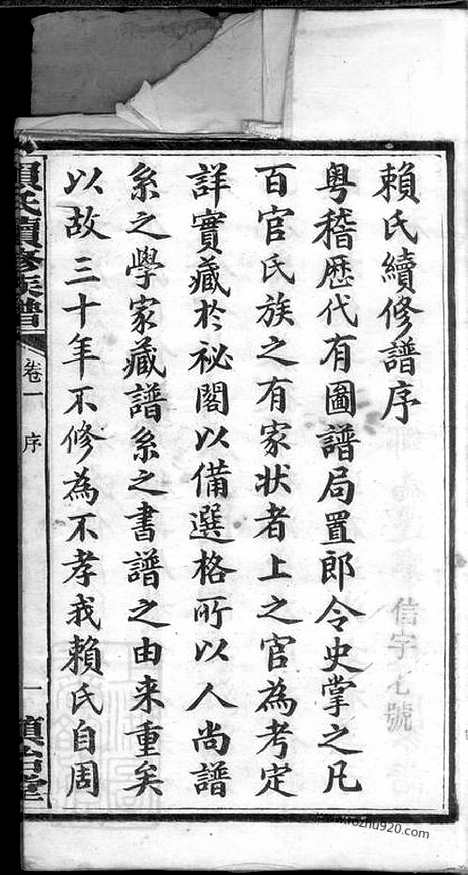 賴氏續修譜序
信字七號
粵稽歷代有圖譜局置郎令史掌之凡
百官氏族之有家狀者上之官為考定
詳實藏於祕閣以備選格所以人尚譜
系之學家藏譜系之書譜之由来重矣
以故三十年不修為不孝我賴氏自周
賴氏續修族譜
卷一
序
一
www.rozhu920.com